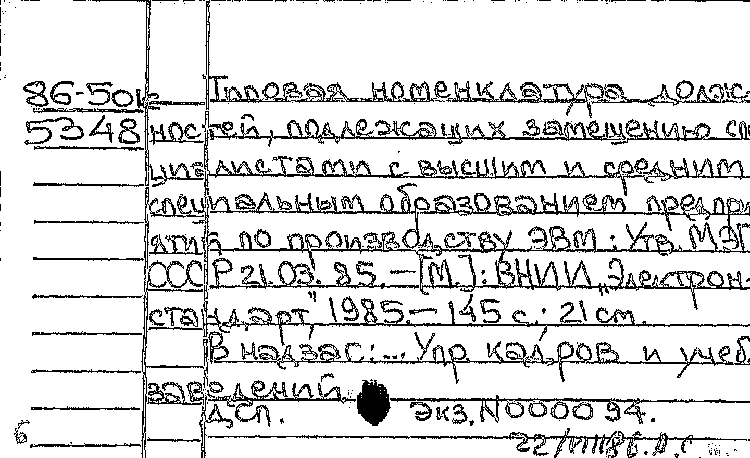 86-50к Типовая номенклатура долж-
5348 ностей, подлежащих замещению спе
циалистами с высшим и средним
специальным образованием предпри
ятий по производству ЭВМ: Утв. МЭП
СССР 21.03.85.—[М.]: ВНИИ „Электрон-
стандарт", 1985.—145 с.; 21 см.
В надзаг.:... Упр. кадров и учеб.
заведений
ДСП. Экз. N000094.
22/VIII86. А.С.
6